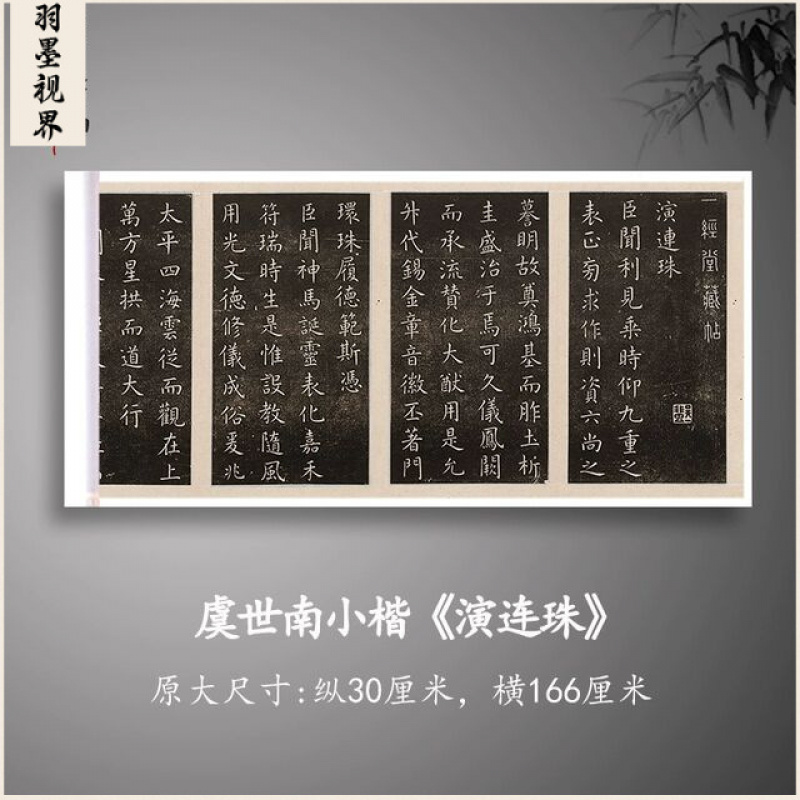 羽墨视界
一經堂藏帖
演連珠
臣聞利見乘時仰九重之
表正旁求作則資六尚之
謩明故奠鴻基而胙土析
圭盛治于焉可久儀鳳闕
而承流贊化大猷用是允
升代錫金章音徽丕著門
環珠履德範斯憑
臣聞神馬誕靈表化嘉禾
符瑞時生是惟設教隨風
用光文德修儀成俗爰兆
太平四海雲從而觀在上
萬方星拱而道大行
虞世南小楷《演连珠》
原大尺寸:纵30厘米，横166厘米